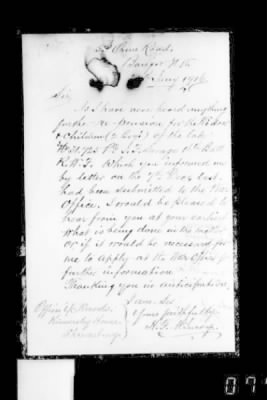 Road
Bangor N.
Jany 1906
Sir
As I have not heard anything
further re pension for the Widow
& Children (2 Boys) of the late
No 725 Pte J. 9th Batt
which you informed me
by letter on the 7th Dec last
had been submitted to the War
Office, I would be pleased to
hear from you at your earliest
what is being done in the matter
or if it would be necessary for
me to apply at the War Office for
further information
Thanking you in anticipation
I am Sir
Yours faithfully
H.
Officer i/c Records
Kimberley House
07